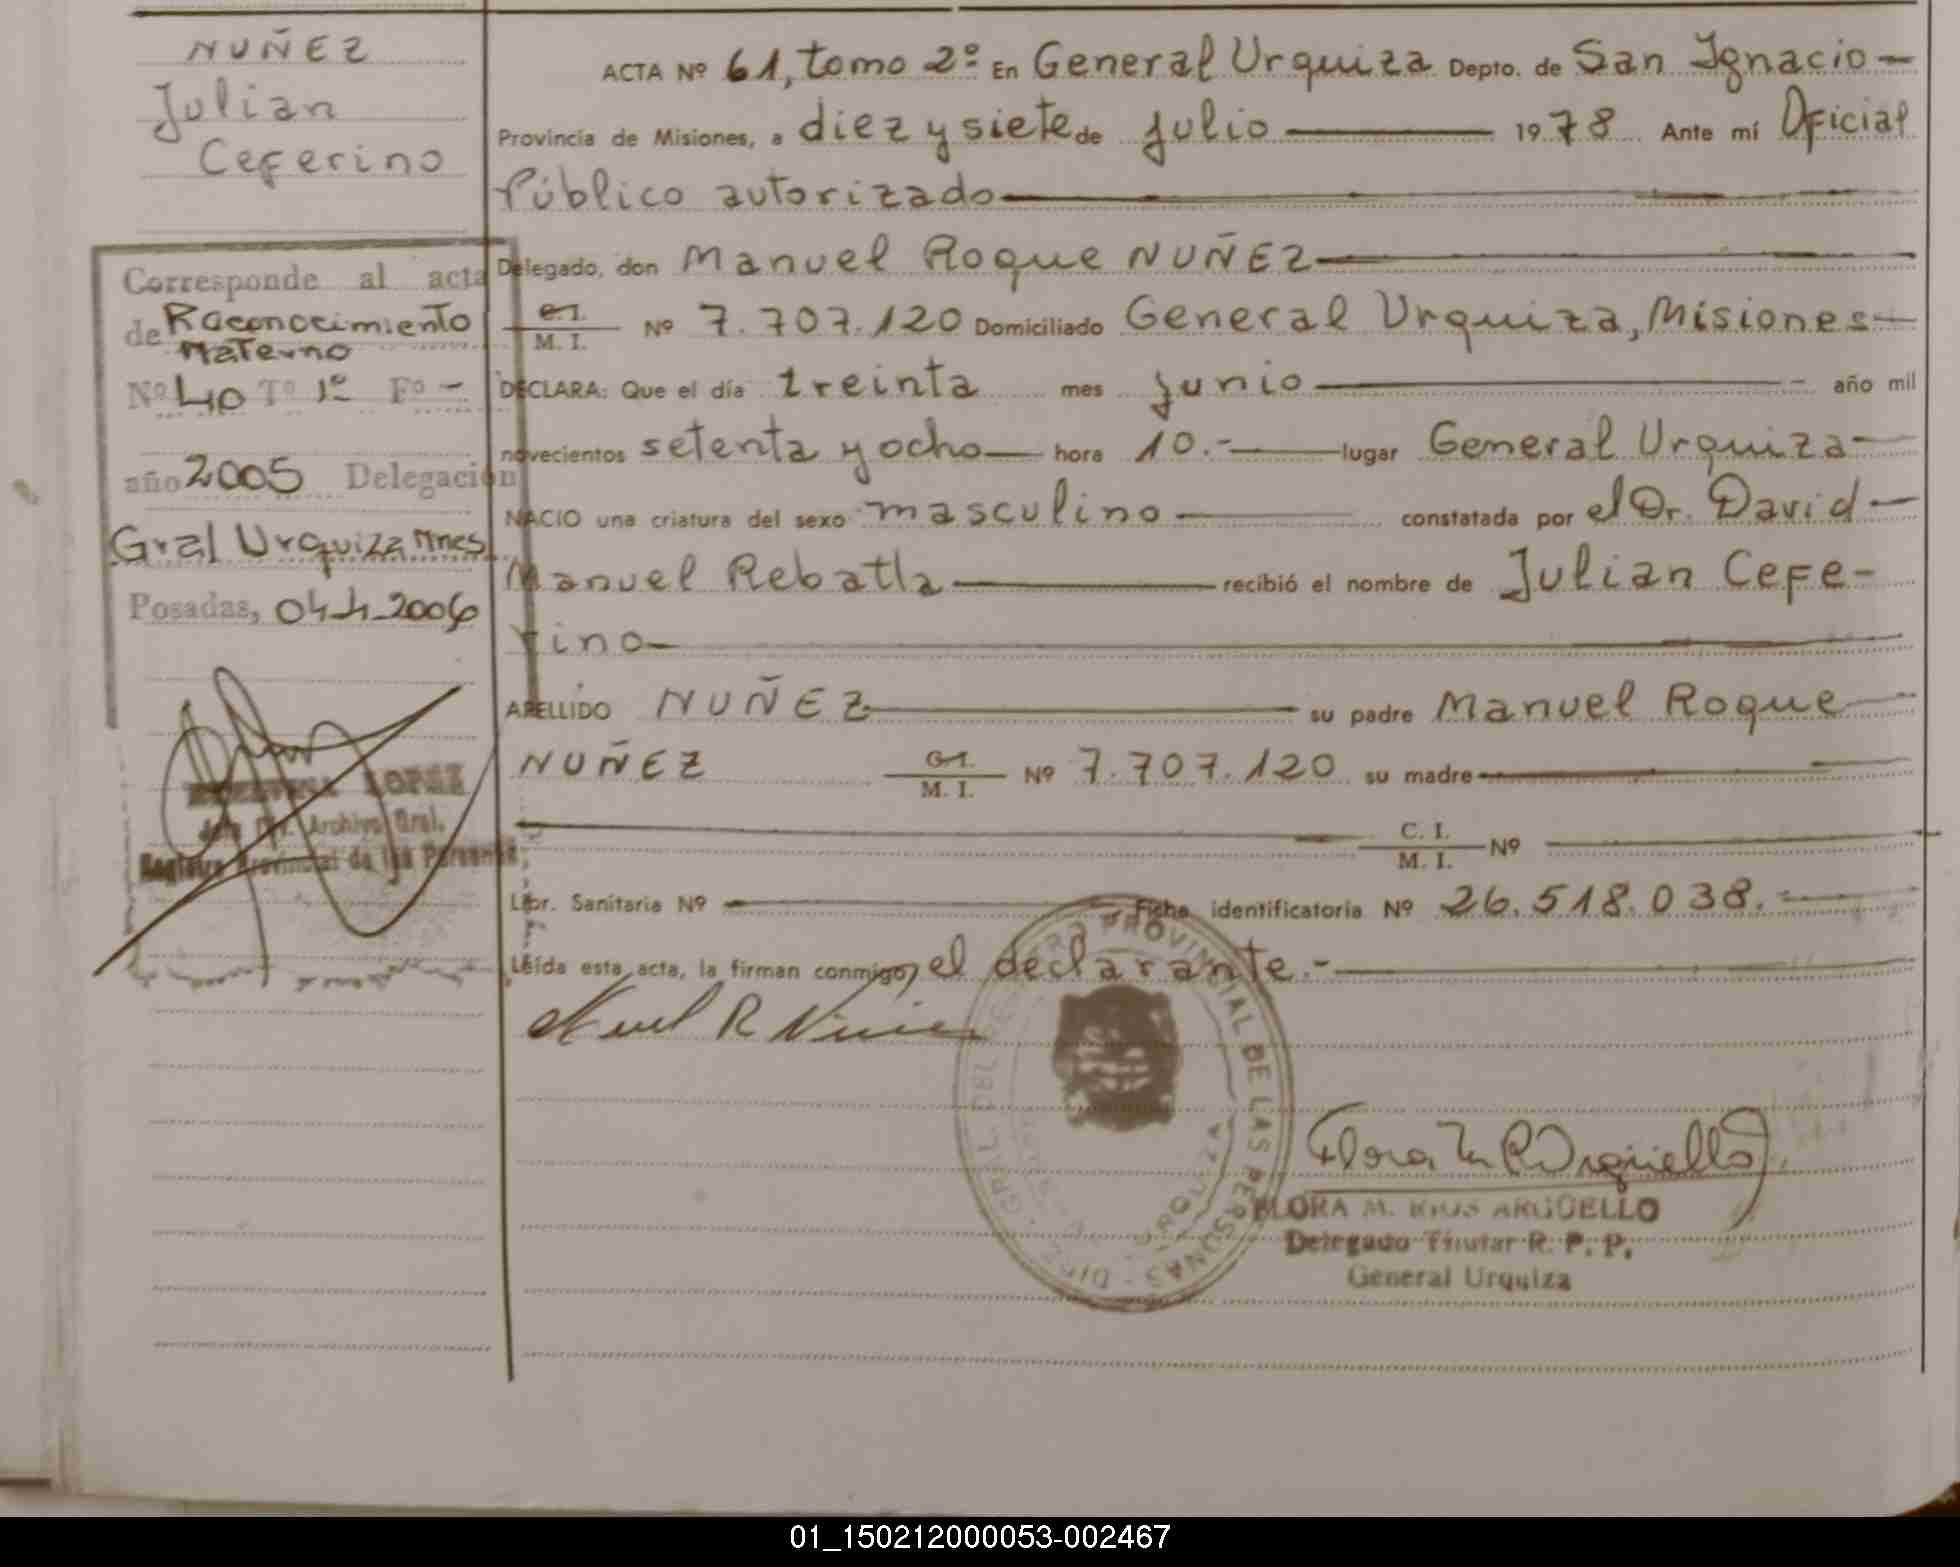 NUÑEZ
Julian
Ceferino
Corresponde al acta
de Reconocimiento
Materno
Nº 40 Tº 1º Fº -
año 2005 Delegación
Gral Urquiza Mnes
Posadas, 04-1-2006
LOPEZ
Jefe Div. Archivo Gral.
Registro Provincial de las Personas
ACTA Nº 61, tomo 2º En General Urquiza Depto. de San Ignacio —
Provincia de Misiones, a diez y siete de julio — 1978 Ante mí Oficial
Público autorizado —
Delegado, don Manuel Roque NUÑEZ —
C.I.
M. I. Nº 7.707.120 Domiciliado General Urquiza, Misiones —
DECLARA: Que el día treinta mes junio — año mil
novecientos setenta y ocho — hora 10.- — lugar General Urquiza —
NACIO una criatura del sexo masculino — constatada por el Dr. David —
Manuel Rebatta — recibió el nombre de Julian Cefe-
rino —
APELLIDO NUÑEZ — su padre Manuel Roque
NUÑEZ C.I.
M. I. Nº 7.707.120 su madre —
C. I.
M. I. Nº —
Libr. Sanitaria Nº — Ficha identificatoria Nº 26.518.038.—
Leída esta acta, la firman conmigo, el declarante.- —
PROVINCIAL DE LAS PERSONAS
URQUIZA
FLORA M. RIOS ARGÜELLO
Delegado Titular R. P. P.
General Urquiza
01_150212000053-002467